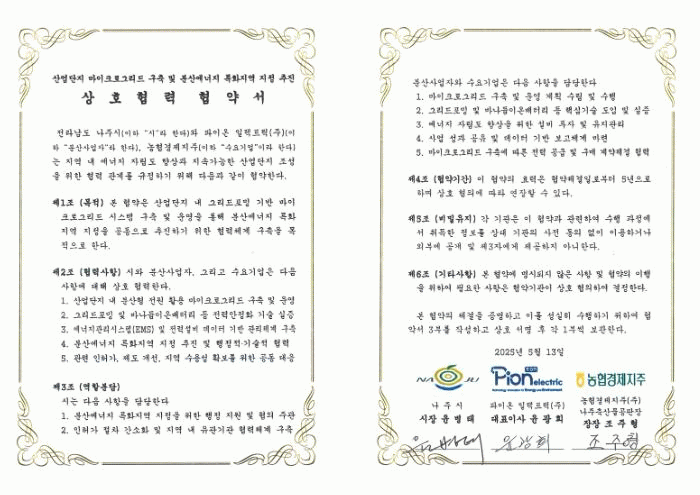 산업단지 마이크로그리드 구축 및 분산에너지 특화지역 지정 추진
상 호 협 력 협 약 서
전라남도 나주시(이하 "시"라 한다)와 파이온 일렉트릭(주)(이
하 "분산사업자"라 한다), 농협경제지주(이하 "수요기업"이라 한다)
는 지역 내 에너지 자립도 향상과 지속가능한 산업단지 조성
을 위한 협력 관계를 규정하기 위해 다음과 같이 협약한다.
제1조 (목적) 본 협약은 산업단지 내 그리드포밍 기반 마이
크로그리드 시스템 구축 및 운영을 통해 분산에너지 특화
지역 지정을 공동으로 추진하기 위한 협력체계 구축을 목
적으로 한다.
제2조 (협력사항) 시와 분산사업자, 그리고 수요기업은 다음
사항에 대해 상호 협력한다.
1. 산업단지 내 분산형 전원 활용 마이크로그리드 구축 및 운영
2. 그리드포밍 및 바나듐이온배터리 등 전력안정화 기술 실증
3. 에너지관리시스템(EMS) 및 전력설비 데이터 기반 관리체계 구축
4. 분산에너지 특화지역 지정 추진 및 행정적·기술적 협력
5. 관련 인허가, 제도 개선, 지역 수용성 확보를 위한 공동 대응
제3조 (역할분담)
시는 다음 사항을 담당한다
1. 분산에너지 특화지역 지정을 위한 행정 지원 및 협의 주관
2. 인허가 절차 간소화 및 지역 내 유관기관 협력체계 구축
분산사업자와 수요기업은 다음 사항을 담당한다
1. 마이크로그리드 구축 및 운영 계획 수립 및 수행
2. 그리드포밍 및 바나듐이온배터리 등 핵심기술 도입 및 실증
3. 에너지 자립도 향상을 위한 설비 투자 및 유지관리
4. 사업 성과 공유 및 데이터 기반 보고체계 마련
5. 마이크로그리드 구축에 따른 전력 공급 및 구매 계약체결 협력
제4조 (협약기간) 이 협약의 효력은 협약체결일로부터 5년으로
하며 상호 협의에 따라 연장할 수 있다.
제5조 (비밀유지) 각 기관은 이 협약과 관련하여 수행 과정에
서 취득한 정보를 상대 기관의 사전 동의 없이 이용하거나
외부에 공개 및 제3자에게 제공하지 아니한다.
제6조 (기타사항) 본 협약에 명시되지 않은 사항 및 협약의 이행
을 위하여 필요한 사항은 협약기관이 상호 협의하여 결정한다.
본 협약의 체결을 증명하고 이를 성실히 수행하기 위하여 협
약서 3부를 작성하고 상호 서명 후 각 1부씩 보관한다.
2025년 5월 13일
NAJU Pion electric 농협경제지주
나 주 시 파이온 일렉트릭(주) 농협경제지주(주)
나주축산물공판장
시장 윤 병 태 대표이사 윤 광 희 장장 조 주 형
윤병태 윤광희 조주형